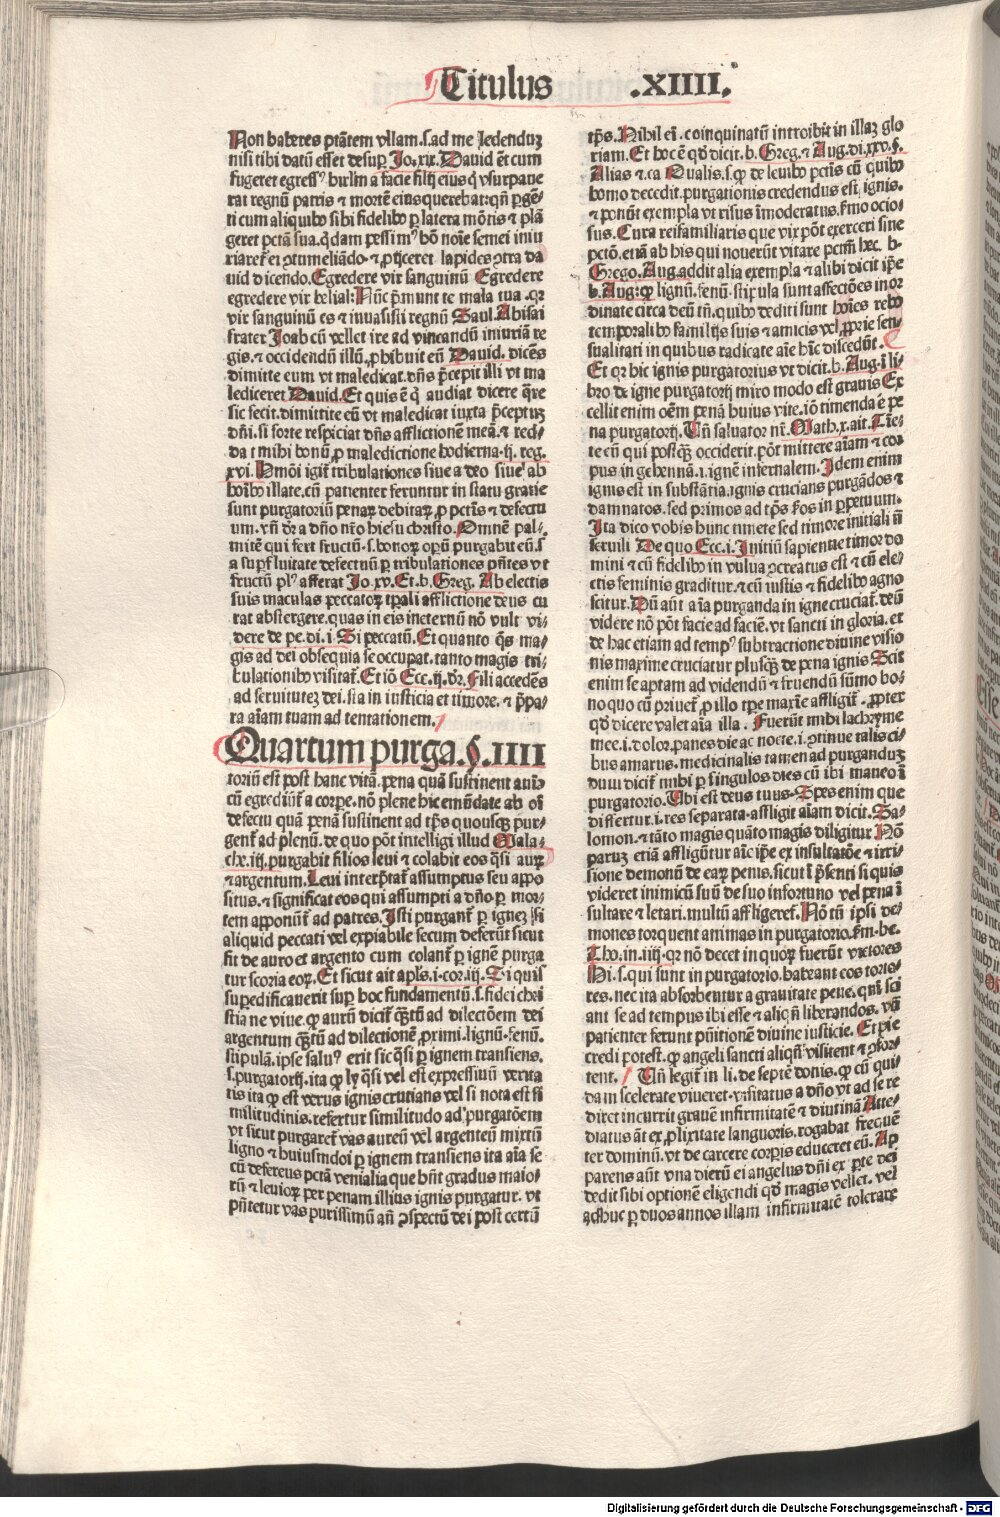 Titulus .XIIII.
Non haberes ptātem vllam.s.ad me ledenduȝ
nisi tibi datū esset desuꝑ Io.xix. Dauid em̄t cum
fugeret egressꝰ hirlm a facie filij eius ꝙ vsurpaue
rat regnū patris ⁊ mortē eius querebat: qn̄
ti cum aliquibꝰ sibi fidelibꝰ ꝑ latera mōtis ⁊ plā
geret pctā sua. qdam pessimꝰ hō noīe semei iniu
riaret ei ꝯtumeliādo. ⁊ ꝓijceret lapides ꝯtra da
uid dicendo. Egredere vir sanguinū Egredere
egredere vir belial: Nūc p̄munt te mala tua .qꝛ
vir sanguinū es ⁊ inuasisti regnū Saul. Abisai
frater Ioab cū vellet ire ad vincandū iniuriā re
gis. ⁊ occidendū illū. ꝓhibuit eū Dauid. dicēs
dimitte eum vt maledicat. dn̄s p̄cepit illi vt ma
lediceret Dauid. Et quis ē ꝙ audiat dicere q̄re
sic fecit. dimittite eū vt maledicat iuxta p̄ceptuȝ
dn̄i. si forte respiciat dn̄s afflictionē meā. ⁊ red⸗
dat mihi bonū ꝓ maledictione hodierna. ij. reg.
xvi. Hmōi igit̄ tribulationes siue a deo siue ab
hoībꝰ illate. cū patienter feruntur in statu gratie
sunt purgatoriū penaꝝ debitaꝝ ꝓ pctīs ⁊ defectu
um. vn̄ dr̄ a dn̄o nr̄o hiesu christo. Omnē pal⸗
mitē qui fert fructū. s. bonoꝝ opeꝝ purgabit eū. s
a suꝑfluitate defectuum ꝑ tribulationes p̄ntes vt
fructū plꝰ afferat Io.xv. Et.b.Greg. Ab electis
suis maculas peccatoꝝ tp̄ali afflictione deus cu
rat abstergere. quas in eis ineternū nō vult vi⸗
dere de pe. di. i. Si peccatū. Et quanto q̄s ma⸗
gis ad dei obsequia se occupat. tanto magis tri⸗
bulationibꝰ visitat̄. Et iō Ecc.ij. dr̄. Fili accedēs
ad seruituteȝ dei. sta in iusticia et timore. ⁊ p̄pa⸗
ra aīam tuam ad tentationem.
Quartum purga. §. IIII
toriū est post hanc vitā. pena quā sustinent
cū egrediūt̄ a corpe. nō plene hic emūdate ab oī
defectu quā penā sustinent ad tp̄s quousqꝫ pur⸗
gent̄ ad plenū. de quo pōt intelligi illud Mala⸗
che.iij. purgabit filios leui ⁊ colabit eos q̄si auꝝ
⁊ argentum. Leui interp̄tat̄ assumptus seu appo
situs. ⁊ significat eos qui assumpti a dn̄o ꝑ mor⸗
tem apponūt̄ ad patres. Isti purgant̄ ꝑ igneȝ si
aliquid peccati vel expiabile secum deferūt sicut
fit de auro et argento cum colant̄ ꝑ ignē purga
tur scoria eoꝝ. Et sicut ait apl̄s. i.cor.iij. Si quis
suꝑedificauerit suꝑ hoc fundamentū. s. fidei chri
stiane viue. ꝙ aurū dicit̄ q̄ȝtū ad dilectōem dei
argentum q̄ȝtū ad dilectionē ꝓximi. lignū. fenū.
stipulā. ipse saluꝰ erit sic q̄si ꝑ ignem transiens.
s. purgatorij. ita ꝙ ly q̄si vel est expressiuū verita
tis ita ꝙ est verus ignis crucians vel si nota est si
militudinis. refertur similitudo ad purgatōem
vt sicut purgaret̄ vas aureū vel argenteū mixtū
ligno ⁊ huiusmdoi ꝑ ignem transiens ita aīa se
cū defereus pctā venialia que hn̄t gradus maio⸗
rū ⁊ leuioꝝ per penam illius ignis purgatur. vt
p̄ntetur vas purissimū an̄ ꝯspectū dei post certū
tp̄s. Nihil em̄. coinquinatū introibit in illaȝ glo
riam. Et hoc ē qd dicit. b. Greg. ⁊ Aug. di. xxv. §.
Alias ⁊ .ca Qualis. s. ꝙ de leuibꝰ pctīs cū quibꝰ
homo decedit. purgationis credendus est ignis.
⁊ ponūt exempla vt risus īmoderatus. sermo ocio⸗
sus. Cura reifamiliaris que vix pōt exerceri sine
pctō. etiā ab his qui nouerūt vitare pctm̄ hec. b.
Grego. Aug. addit alia exempla ⁊ alibi dicit ip̄e
b. Aug: ꝙ lignū. fenū. stipula sunt affectiōes inor
dinate circa deū tn̄. quibꝰ dediti sunt hoīes rebꝰ
temporalibꝰ familijs suis ⁊ amicis vel ꝓprie sen⸗
sualitati in quibus radicate aīe hic discedūt.
Et qꝛ hic ignis purgatorius vt dicit. b. Aug. ī li⸗
bro de igne purgatorij miro modo est grauis Ex
cellit enim oēm penā huius vite. iō timenda ē pe
na purgatorij. Un̄ saluator nr̄. Math.x. ait. Time⸗
te eū qui postqꝫ occiderit. pōt mittere aīam ⁊ cor
pus in gehennā. i. ignē infernalem. Idem enim
ignis est in substātia. ignis crucians purgādos ⁊
damnatos. sed primos ad tp̄s hos in ꝑpetuum.
Ita dico vobis hunc timete sed timore initiali nō
seruili De quo Ecc.i. Initiū sapientie timor do
mini ⁊ cū fidelibꝰ in vulua ꝯcreatus est ⁊ cū ele⸗
ctis feminis graditur. ⁊ cū iustis ⁊ fidelibꝰ agno
scitur. Dū aūt aīa purganda in igne cruciat̄. deū
videre nō pōt facie ad faciē. vt sancti in gloria. et
de hac etiam ad tempꝰ subtractione diuine visio
nis maxime cruciatur plusqꝫ de pena ignis Scit
enim se aptam ad videndū ⁊ fruendū sūmo bo⸗
no quo cū priuet̄ ꝓ illo tp̄e maxīe affligit̄. ꝓpter
qd dicere valet aīa illa. Fuerūt mihi lachryme
mee. i. dolor. panes die ac nocte. i. ꝯtinue talis ci⸗
bus amarus. medicinalis tamen ad purganduȝ
dum dicit̄ mihi ꝑ singulos dies cū ibi maneo ī
purgatorio. Ubi est deus tuus. Spes enim que
differtur. i. res separata. affligit aīam dicit. Sa⸗
lomon. ⁊ tāto magis quāto magis diligitur Nō
paruȝ etiā affligūtur aīe ip̄e ex insultatōe ⁊ irri⸗
sione demonū de eaꝝ penis. sicut ī p̄senti si quis
videret inimicū suū de suo infortunio vel pena ī
sultare ⁊ letari. multū affligeret̄. Nō tn̄ ipsi de⸗
mones torquent animas in purgatorio. sm. be.
Tho. in. iiij. qꝛ nō decet in quoꝝ fuerūt victores
Hi. s. qui sunt in purgatorio. habeant eos torto⸗
res. nec ita absorbentur a grauitate pene. qn̄ sci
ant se ad tempus ibi esse ⁊ aliqn̄ liberandos. vn̄
patienter ferunt pūitionē diuine iusticie. Et pie
credi potest. ꝙ angeli sancti aliqn̄ visitent ⁊ ꝯfor⸗
tent. Un̄ legit̄ in li. de septē donis. ꝙ cū qui⸗
dam scelerate viueret. visitatus a dn̄o vt ad se re
diret incurrit grauē infirmitatē ⁊ diutinā Atte⸗
diatus āt ex ꝓlixitate languoris. rogabat frequē
ter dominū. vt de carcere corpis educeret eū. Ap
parens aūt vna dierū ei angelus dn̄i ex ꝑte dei
dedit sibi optionē eligendi qd magis vellet. vel
adhuc ꝑ duos annos illam infirmitatē tolerare
Digitalisierung gefördert durch die Deutsche Forschungsgemeinschaft - DFG